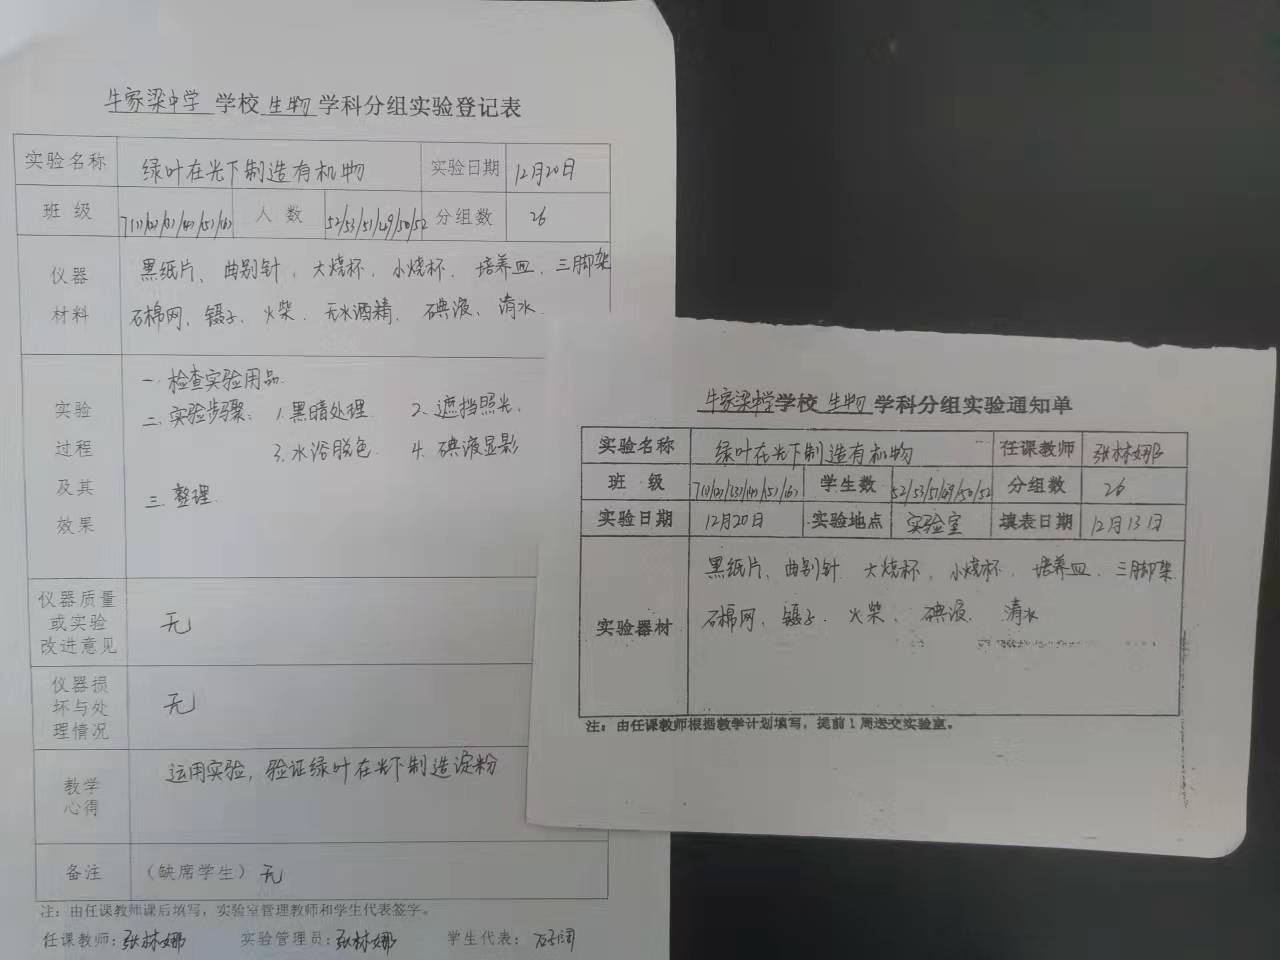 牛家梁中学 学校 生物 学科分组实验登记表
实验名称 绿叶在光下制造有机物 实验日期 12月20日
班 级 7(1)/(2)/(3)/(4)/(5)/(6) 人 数 52/53/51/49/50/52 分组数 26
仪器
材料
黑纸片、曲别针、大烧杯、小烧杯、培养皿、三脚架
石棉网、镊子、火柴、无水酒精、碘液、清水
实验
过程
及其
效果
一.检查实验用品
二.实验步骤: 1.黑暗处理 2.遮挡照光
3.水浴脱色 4.碘液显影
三.整理
仪器质量
或实验
改进意见
无
仪器损
坏与处
理情况
无
教学
心得
运用实验,验证绿叶在光下制造淀粉
备注 (缺席学生)无
注:由任课教师课后填写,实验室管理教师和学生代表签字。
任课教师:张林娜 实验管理员:张林娜 学生代表:
牛家梁中学 学校 生物 学科分组实验通知单
实验名称 绿叶在光下制造有机物 任课教师 张林娜
班 级 7(1)/(2)/(3)/(4)/(5)/(6) 学生数 52/53/51/49/50/52 分组数 26
实验日期 12月20日 实验地点 实验室 填表日期 12月13日
实验器材
黑纸片、曲别针 大烧杯、小烧杯、培养皿、三脚架
石棉网、镊子、火柴、碘液、清水
注:由任课教师根据教学计划填写,提前1周送交实验室。